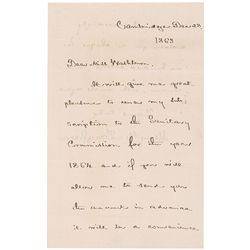 Cambridge Dec 23
1863
Dear Miss
It will give me great
pleasure to renew my sub-
scription to the Sanitary
Commission for the year
1864 and if you will
allow me to send you
the amount in advance
it will be a convenience